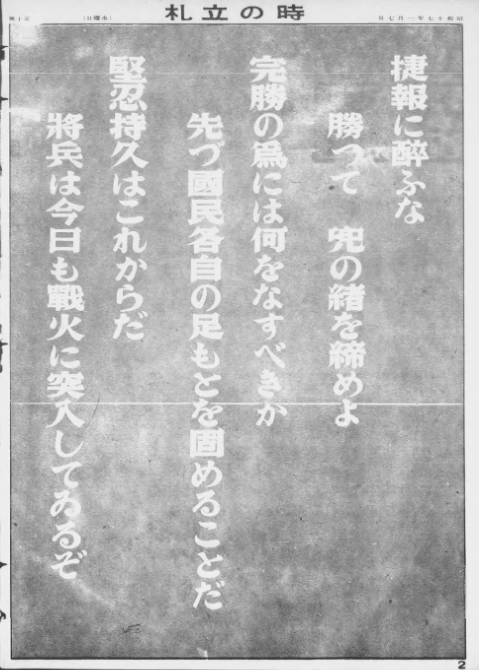 時の立札
昭和十七年一月七日
(水曜日)
捷報に醉ふな
勝つて 兜の緒を締めよ
完勝の爲には何をなすべきか
先づ國民各自の足もとを固めることだ
堅忍持久はこれからだ
將兵は今日も戰火に突入してゐるぞ
2